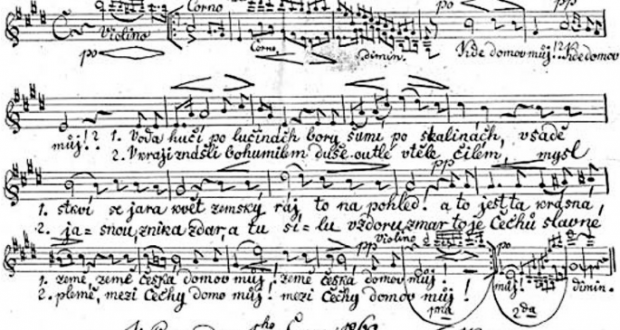 Corno
po
pp
Violino
po
Corno
dimin.
Kde domov můj! Kde domov
můj! 1. Voda hučí po lučinách bory šumí po skalinách, v sadě
2. V kraji znášli bohumilém duše outlé v těle čilém, mysl
1. stkví se jara květ zemský ráj to na pohled. a to jest ta krásná
2. jasnou, znik a zdar, a tu sílu vzdoru zmar to je Čechů slavné
po
pp
Violino
pp
po
1. země, země česká domov můj! země česká domov můj!
2. plémě, mezi Čechy domov můj! mezi Čechy domov můj!
můj!
dimin.
ma
2 da